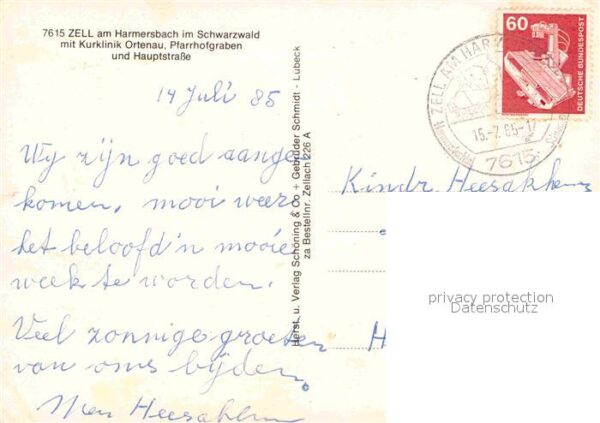 7615 ZELL am Harmersbach im Schwarzwald
mit Kurklinik Ortenau, Pfarrhofgraben
und Hauptstraße
14 Juli 85
Wy zijn goed aange
komen, mooi weer
het beloofd'n mooie
week te worden.
Veel zonnige groeten
van ons bijden.
Heesakkers
Herst. u. Verlag Schöning & Co + Gebrüder Schmidt - Lübeck
za Bestellnr. Zellach 226 A
60
DEUTSCHE BUNDESPOST
ZELL AM HAR
15.-7.85-17
7615
Kindr Heesakkers
H
privacy protection
Datenschutz